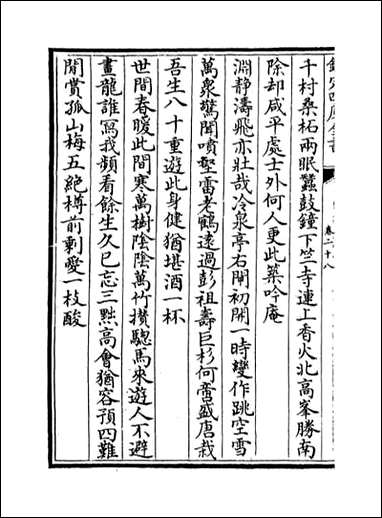 欽定四庫全書
卷二十八
千村桑柘兩眠蠶鼓鐘下竺寺連上香火北高峯勝南
除却咸平處士外何人更此築吟庵
淵静濤飛亦壯哉冷泉亭右閘初開一時變作跳空雪
萬衆驚聞噴壑雷老鶴遠過彭祖壽巨杉何啻盛唐栽
吾生八十重遊此身健猶堪酒一杯
世間春暖此間寒萬樹陰陰萬竹攢驄馬來遊人不避
畫龍誰寫我頻看餘生久已忘三黜高會猶容預四難
閒賞孤山梅五絶樽前剩愛一枝酸